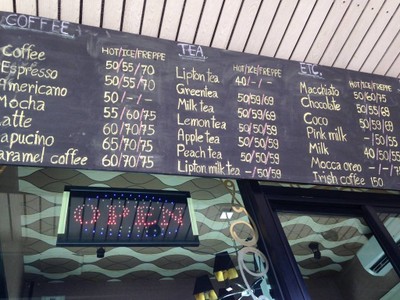 COFFEE
HOT/ICE/FREPPE
Coffee 50/55/70
Espresso 50/55/70
Americano 50/-/-
Mocha 55/60/75
Latte 60/70/75
Capucino 65/70/75
Caramel coffee 60/70/75
TEA
HOT/ICE/FREPPE
Lipton tea 40/-/-
Greentea 50/59/69
Milk tea 50/59/69
Lemontea 50/50/59
Apple tea 50/50/59
Peach tea 50/50/59
Lipton milk tea -/50/59
ETC.
HOT/ICE/FREPPE
Macchiato 50/60/75
Chocolate 50/55/69
Coco 50/59/69
Pink milk -/50/55
Milk 40/50/55
Mocca oreo -/-/75
Irish coffee 150
OPEN